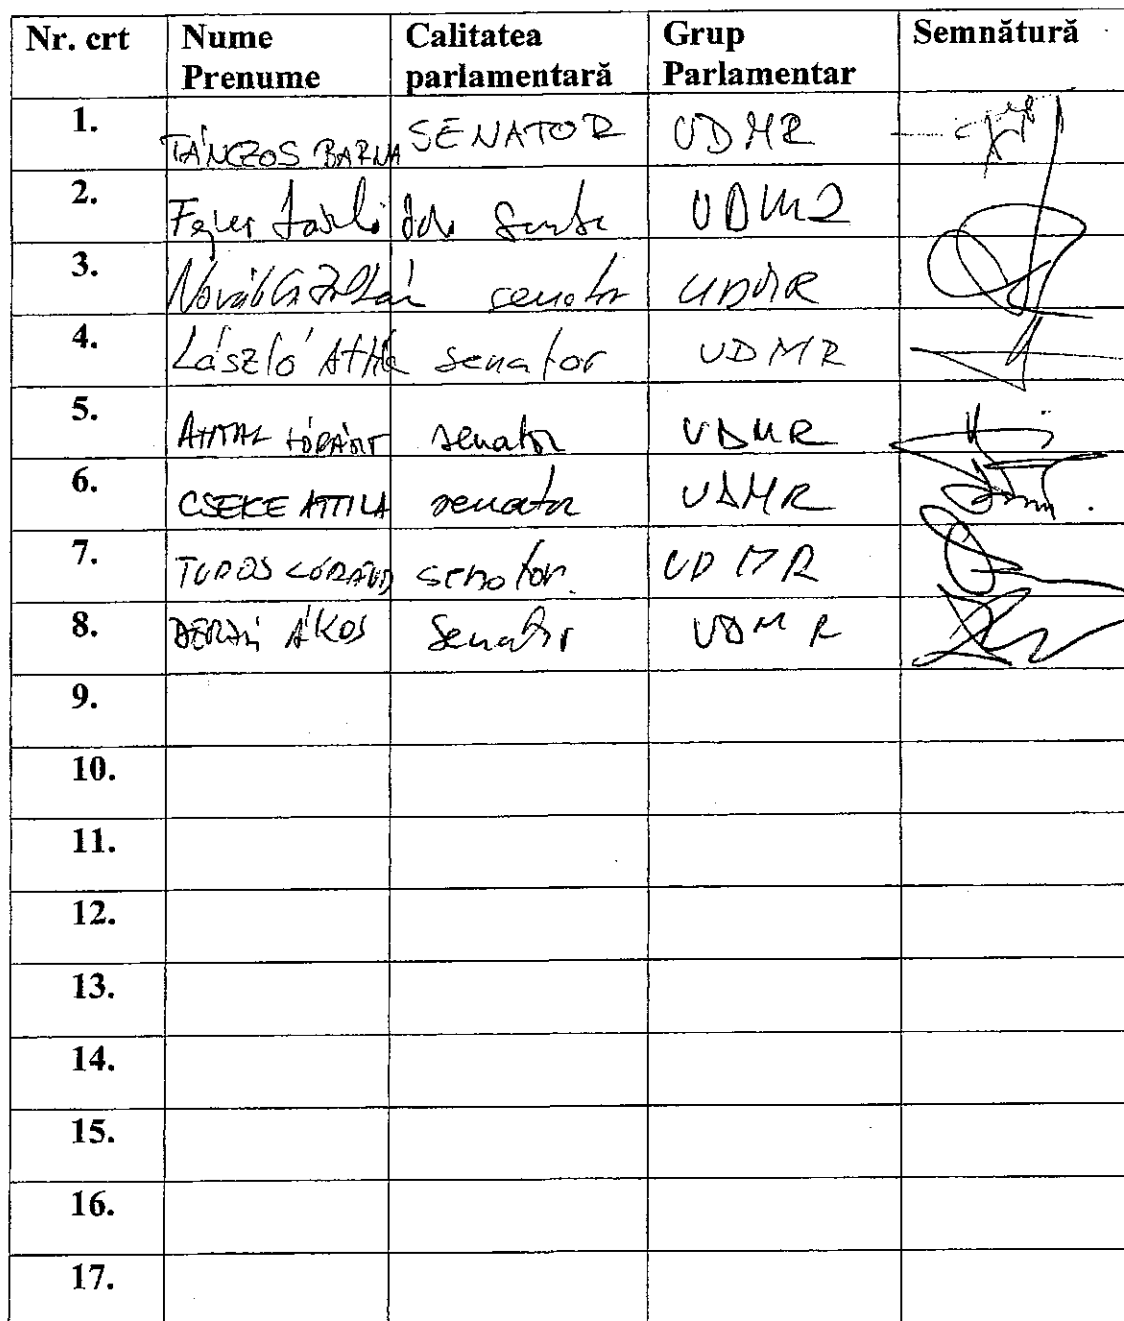 Nr. crt Nume Prenume Calitatea parlamentară Grup Parlamentar Semnătură
1. TÁNCZOS BARNA SENATOR UDMR
2. Fejér UDMR
3. Novák Zoltán senator UDMR
4. László Attila senator UDMR
5. ANTAL LÓRÁNT senator UDMR
6. CSEKE ATTILA senator UDMR
7. TUROS LÓRÁND senator UDMR
8. ÁKOS Senator UDMR
9.
10.
11.
12.
13.
14.
15.
16.
17.